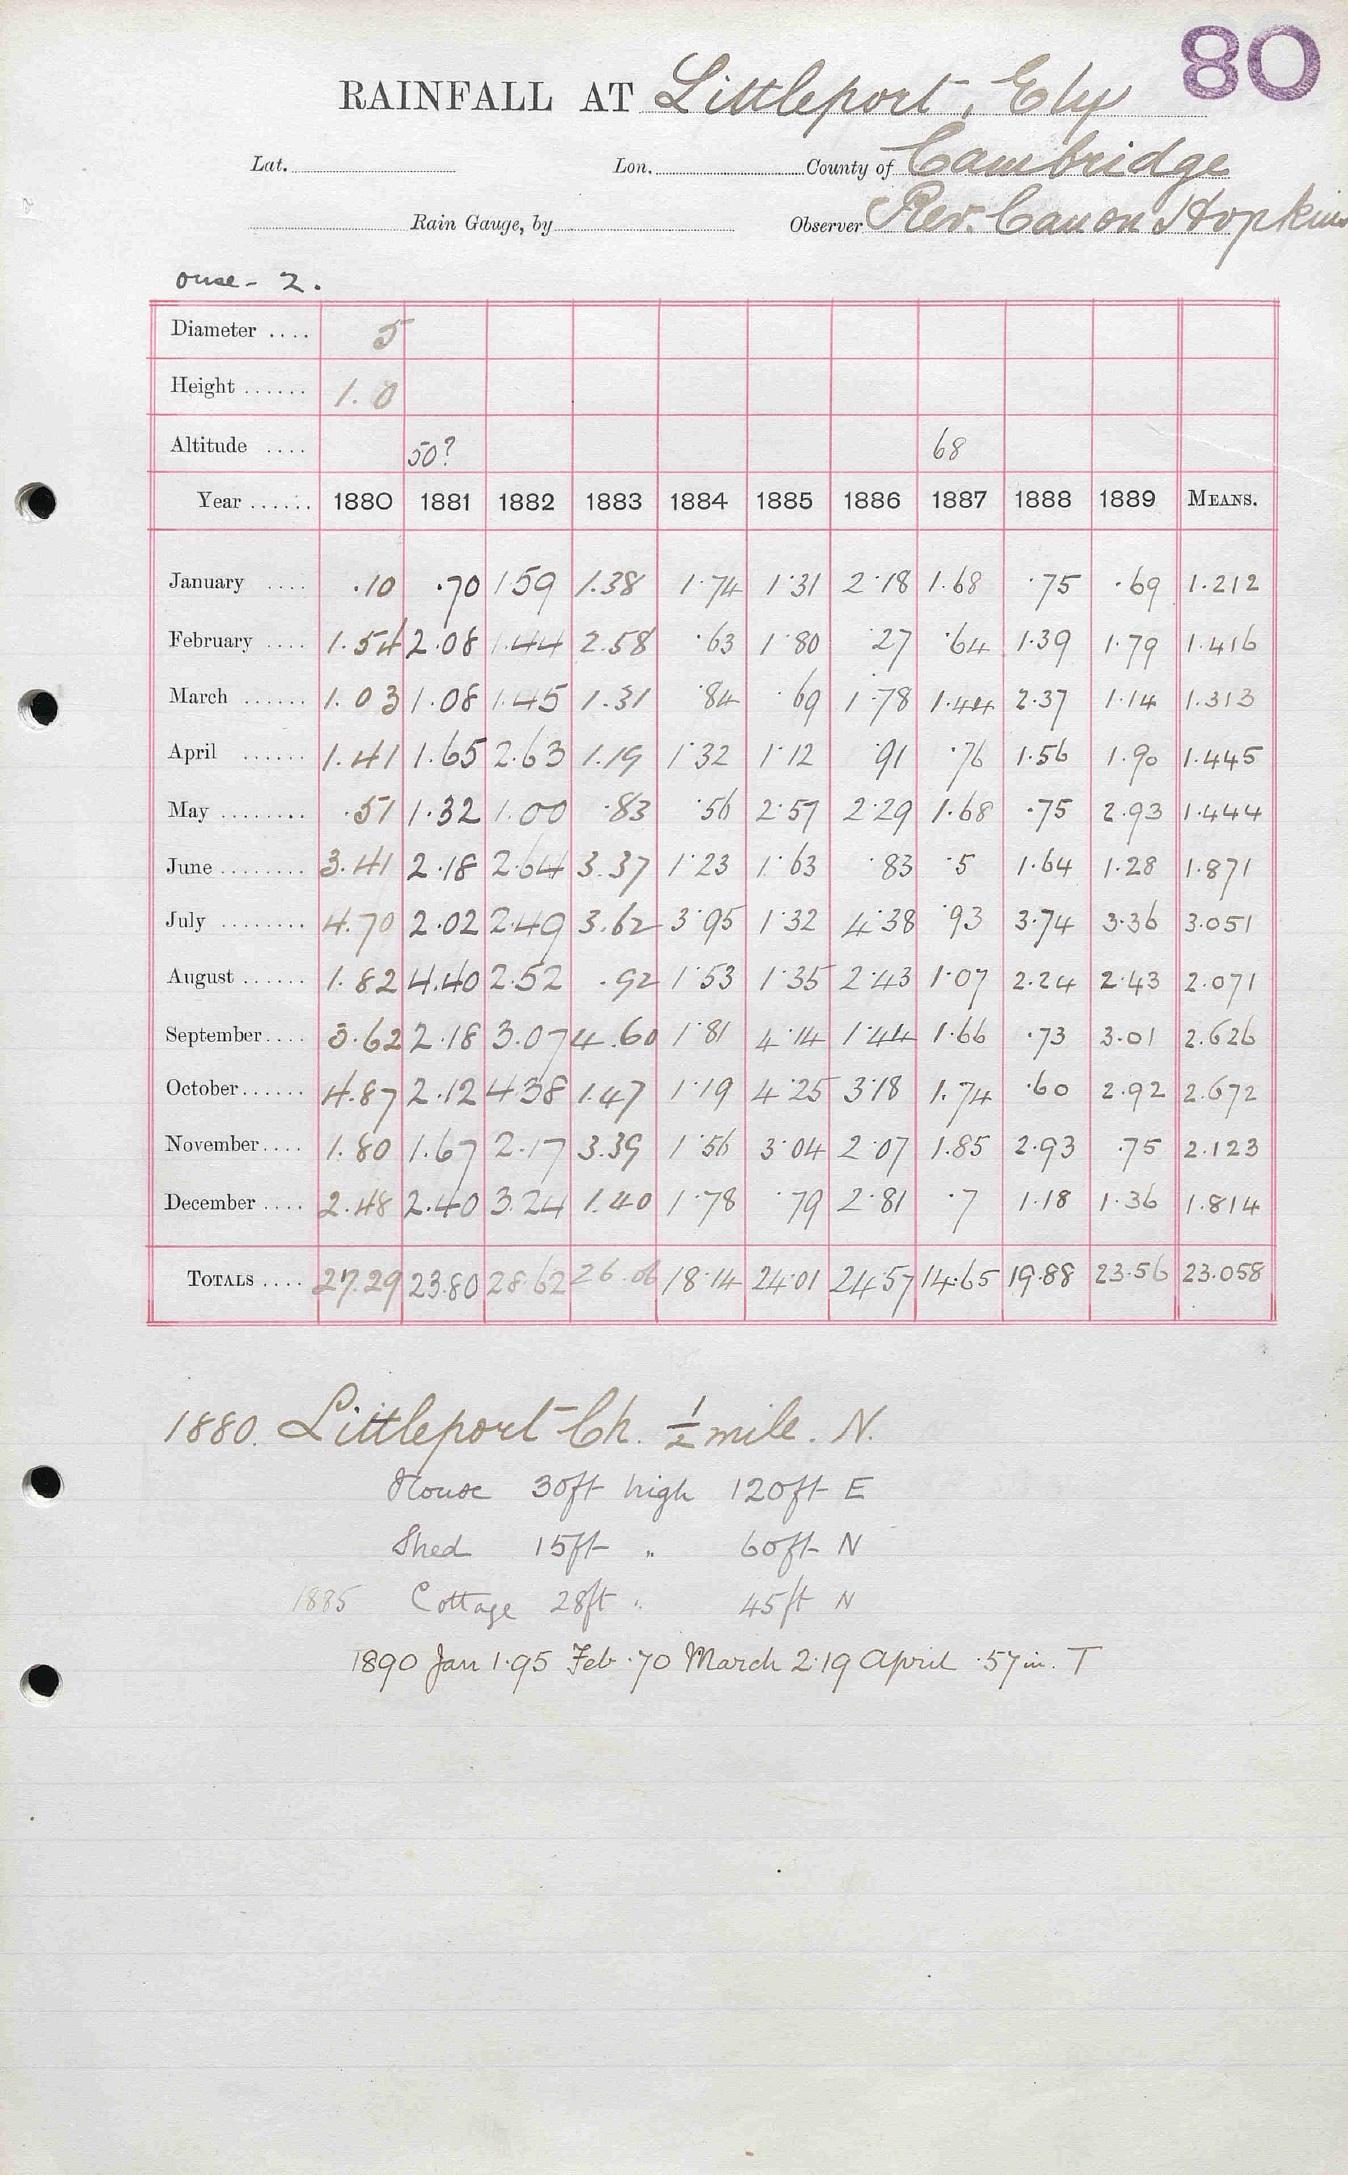 80
RAINFALL AT Littleport, Ely
Lat. Lon. County of Cambridge
Rain Gauge, by Observer Rev. Canon Hopkins
Ouse - 2.
Diameter .... 5
Height ...... 1.0
Altitude .... 50? 68
Year ...... 1880 1881 1882 1883 1884 1885 1886 1887 1888 1889 MEANS.
January .... .10 .70 1.59 1.38 1.74 1.31 2.18 1.68 .75 .69 1.212
February .... 1.54 2.08 1.44 2.58 .63 1.80 .27 .64 1.39 1.79 1.416
March ...... 1.03 1.08 1.45 1.31 .84 .69 1.78 1.44 2.37 1.14 1.313
April ...... 1.41 1.65 2.63 1.19 1.32 1.12 .91 .76 1.56 1.90 1.445
May ........ .51 1.32 1.00 .83 .56 2.57 2.29 1.68 .75 2.93 1.444
June ........ 3.41 2.18 2.64 3.37 1.23 1.63 .83 .5 1.64 1.28 1.871
July ........ 4.70 2.02 2.49 3.62 3.95 1.32 4.38 .93 3.74 3.36 3.051
August ...... 1.82 4.40 2.52 .92 1.53 1.35 2.43 1.07 2.24 2.43 2.071
September.... 3.62 2.18 3.07 4.60 1.81 4.14 1.44 1.66 .73 3.01 2.626
October...... 4.87 2.12 4.38 1.47 1.19 4.25 3.18 1.74 .60 2.92 2.672
November.... 1.80 1.67 2.17 3.39 1.56 3.04 2.07 1.85 2.93 .75 2.123
December .... 2.48 2.40 3.24 1.40 1.78 .79 2.81 .7 1.18 1.36 1.814
TOTALS .... 27.29 23.80 28.62 26.06 18.14 24.01 24.57 14.65 19.88 23.56 23.058
1880. Littleport Ch. ½ mile. N.
House 30ft high 120ft E
Shed 15ft " 60ft N
1885 Cottage 28ft " 45ft N
1890 Jan 1.95 Feb .70 March 2.19 April .57 in. T